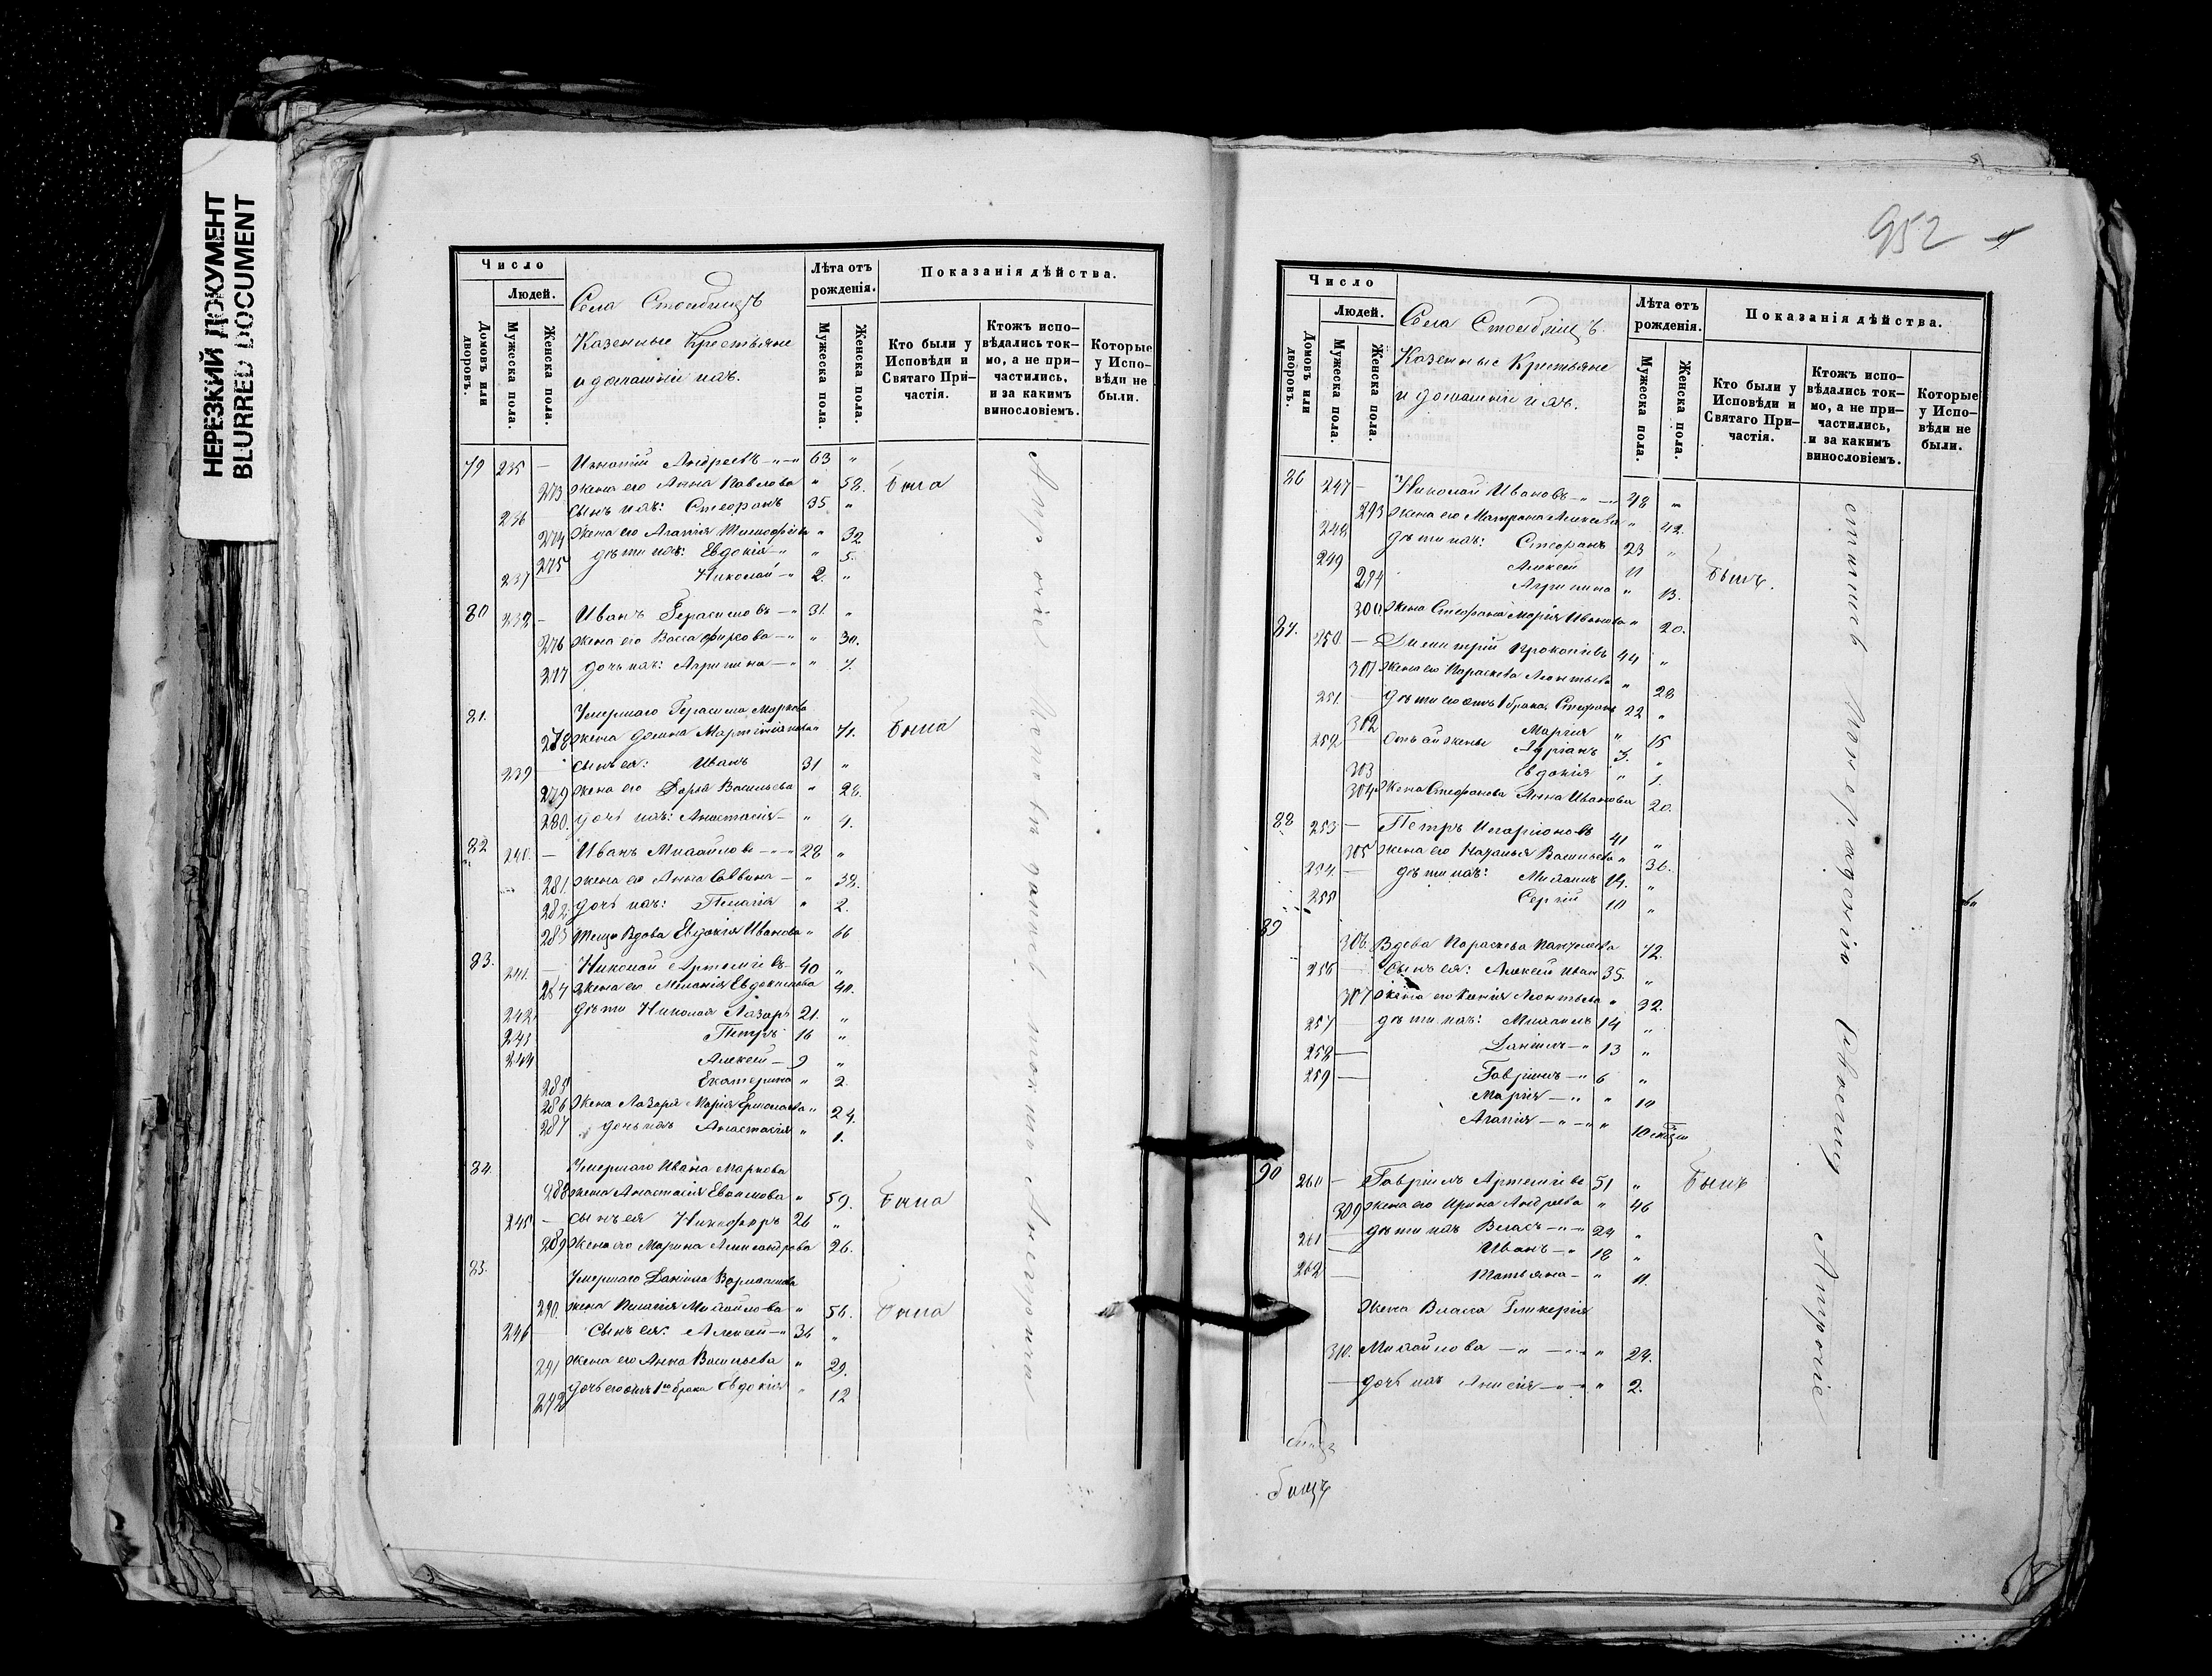 НЕРЕЗКИЙ ДОКУМЕНТ
BLURRED DOCUMENT
Число
Людей.
Домовъ или дворовъ.
Мужеска пола.
Женска пола.
Села
Казенные Крестьяне
и домашніи ихъ.
Лѣта отъ рожденія.
Мужеска пола.
Женска пола.
Показанія дѣйства.
Кто были у Исповѣди и Святаго При-частія.
Ктожъ испо-вѣдались ток-мо, а не при-частились, и за какимъ винословіемъ.
Которые у Испо-вѣди не были.
79 235 — Игнатій Андреевъ 63 „
273 жена его Анна Павлова „ 58. Была
236 сынъ ихъ: Стефанъ 35 „
274 Жена его Агапія Тимофѣева „ 32
275 дѣти ихъ: Евдокія „ 5.
237 Николай 2. „
80 238 — Иванъ Герасимовъ 31. „
276 жена его Васса Фирсова „ 30.
277 дочь ихъ: Агрипина „ 7.
81. Умершаго Герасима Маркова
278 жена Домна „ 71. Была
239 — сынъ ея: Иванъ 31 „
279 жена его Дарья Васильева „ 28.
280. дочь ихъ: Анастасія „ 4.
82 240. — Иванъ Михайловъ 28 „
281. жена его Анна Саввина „ 38.
282 дочь ихъ: Пелагія „ 2.
283 теща Вдова Евдокія Иванова „ 66
83. 241. — Николай Артеміевъ 40 „
284 жена его Меланія Евдокимова 40.
242 дѣти Николая Лазарь 21. „
243 Петръ 16 „
244 Алексей 9 „
285 Екатерина „ 2.
286 Жена Лазаря Марія Ермолаева „ 24.
287 дочь ихъ Анастасія „ 1.
84. Умершаго Ивана Маркова
288 жена Анастасія „ 59. Была
245 — сынъ ея Никифоръ 26 „
289 Жена его Марина Александрова 26.
85. Умершаго Даніила
290. жена Пелагія Михайлова „ 56. Была
246 — сынъ ея: Алексей 36 „
291 жена его Анна Васильева „ 29.
292 дочь его отъ 1го брака Евдокія „ 12
952
Число
Людей.
Домовъ или дворовъ.
Мужеска пола.
Женска пола.
Села
Казенные Крестьяне
и домашніи ихъ.
Лѣта отъ рожденія.
Мужеска пола.
Женска пола.
Показанія дѣйства.
Кто были у Исповѣди и Святаго При-частія.
Ктожъ испо-вѣдались ток-мо, а не при-частились, и за какимъ винословіемъ.
Которые у Испо-вѣди не были.
86 247 — Николай Ивановъ 48 „
293 жена его Матрона Алексеева „ 42.
248 дѣти ихъ: Стефанъ 23 „
249 Алексей 11 Былъ.
294 Агрипина „ 13.
300 жена Стефана Марія Иванова „ 20.
87. 250 — Димитрій Прокопіевъ 44 „
301 жена его Параскева Леонтьева „ 28
251. — дѣти его отъ 1 брака. Стефанъ 22 „
302 Марія „ 15
252 Адріанъ 3. „
303 Евдокія „ 1.
304 жена Стефанова Анна Иванова 20.
88 253 — Петръ Иларіоновъ 41 „
305 жена его Наталья Васильева „ 36.
254. — дѣти ихъ: Михаилъ 14. „
255 Сергій 10 „
89 306. Вдова Параскева 72.
256 — сынъ ея: Алексей Иван 35. „
307 жена его Ксенія Леонтьева „ 32.
257 — дѣти ихъ: Михаилъ 14 „
258 — Даніилъ 13 „
259 — Гавріилъ 6 „
Марія „ 10
Агапія „ 10
90 260 — Гавріилъ Артеміевъ 51 „ Былъ
309 жена его Ирина Андреева „ 46
261 — дѣти ихъ Власъ 24 „
— Иванъ 18 „
262 — Татьяна „ 11.
Жена Власа Гликерія
310. Михайлова „ 24.
— дочь ихъ Анисія „ 2.